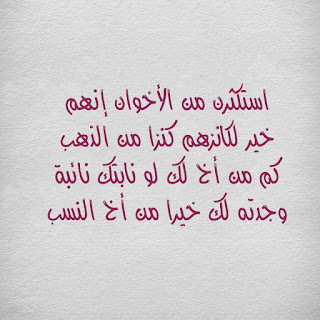 استكثرن من الأخوان إنهم
خير لكانزهم كنزا من الذهب
كم من أخ لك لو نابتك نائبة
وجدته لك خيرا من أخ النسب